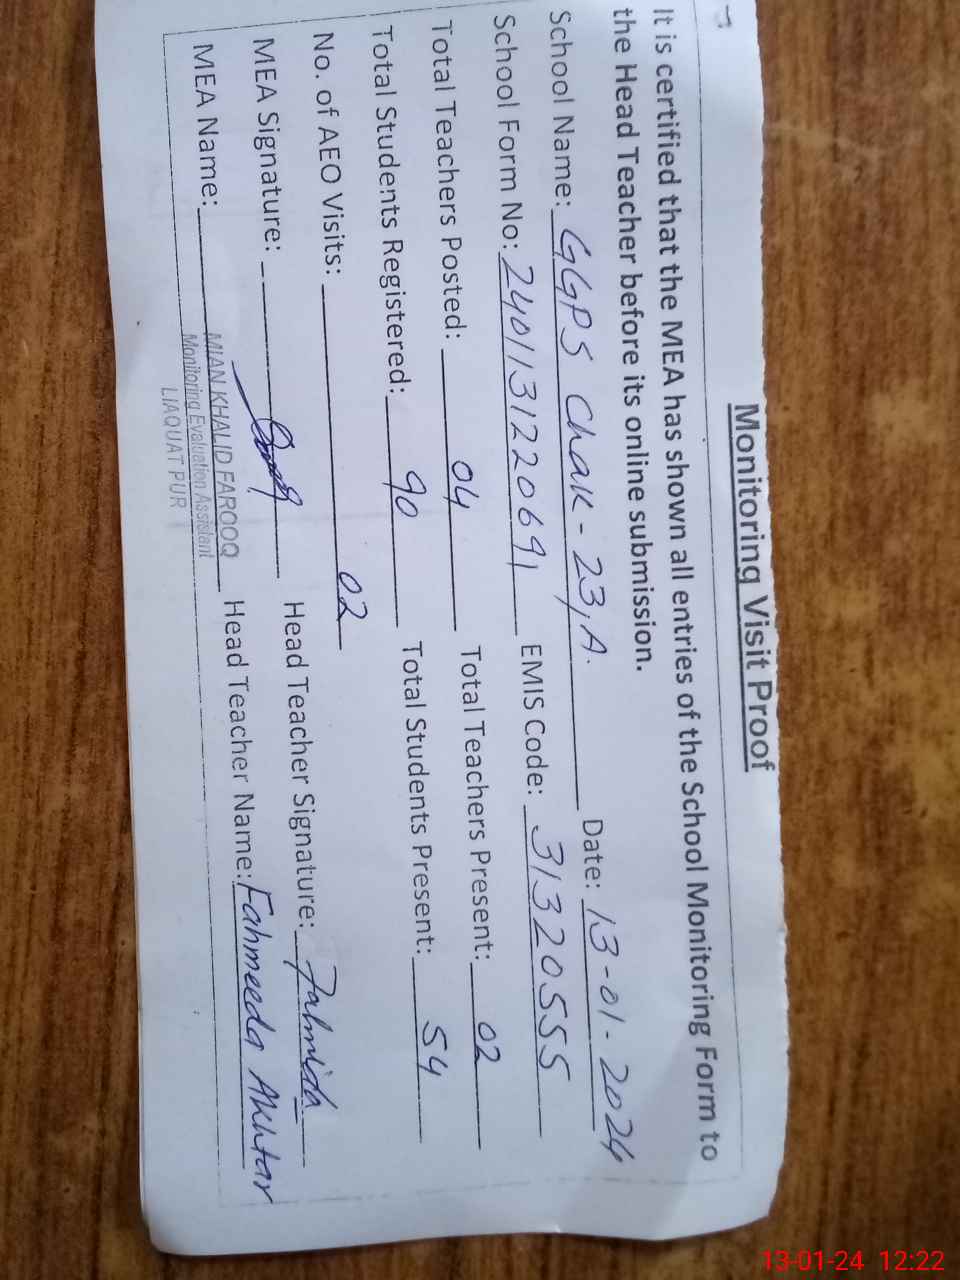 Monitoring Visit Proof
It is certified that the MEA has shown all entries of the School Monitoring Form to
the Head Teacher before its online submission.
School Name: GGPS Chak-23/A. Date: 13-01-2024
School Form No: 2401131220691 EMIS Code: 31320555
Total Teachers Posted: 04 Total Teachers Present: 02
Total Students Registered: 90 Total Students Present: 54
No. of AEO Visits: 02
MEA Signature: Head Teacher Signature: Fahmida
MEA Name: MIAN KHALID FAROOQ Head Teacher Name: Fahmeeda Akhtar
Monitoring Evaluation Assistant
LIAQUAT PUR
13-01-24 12:22